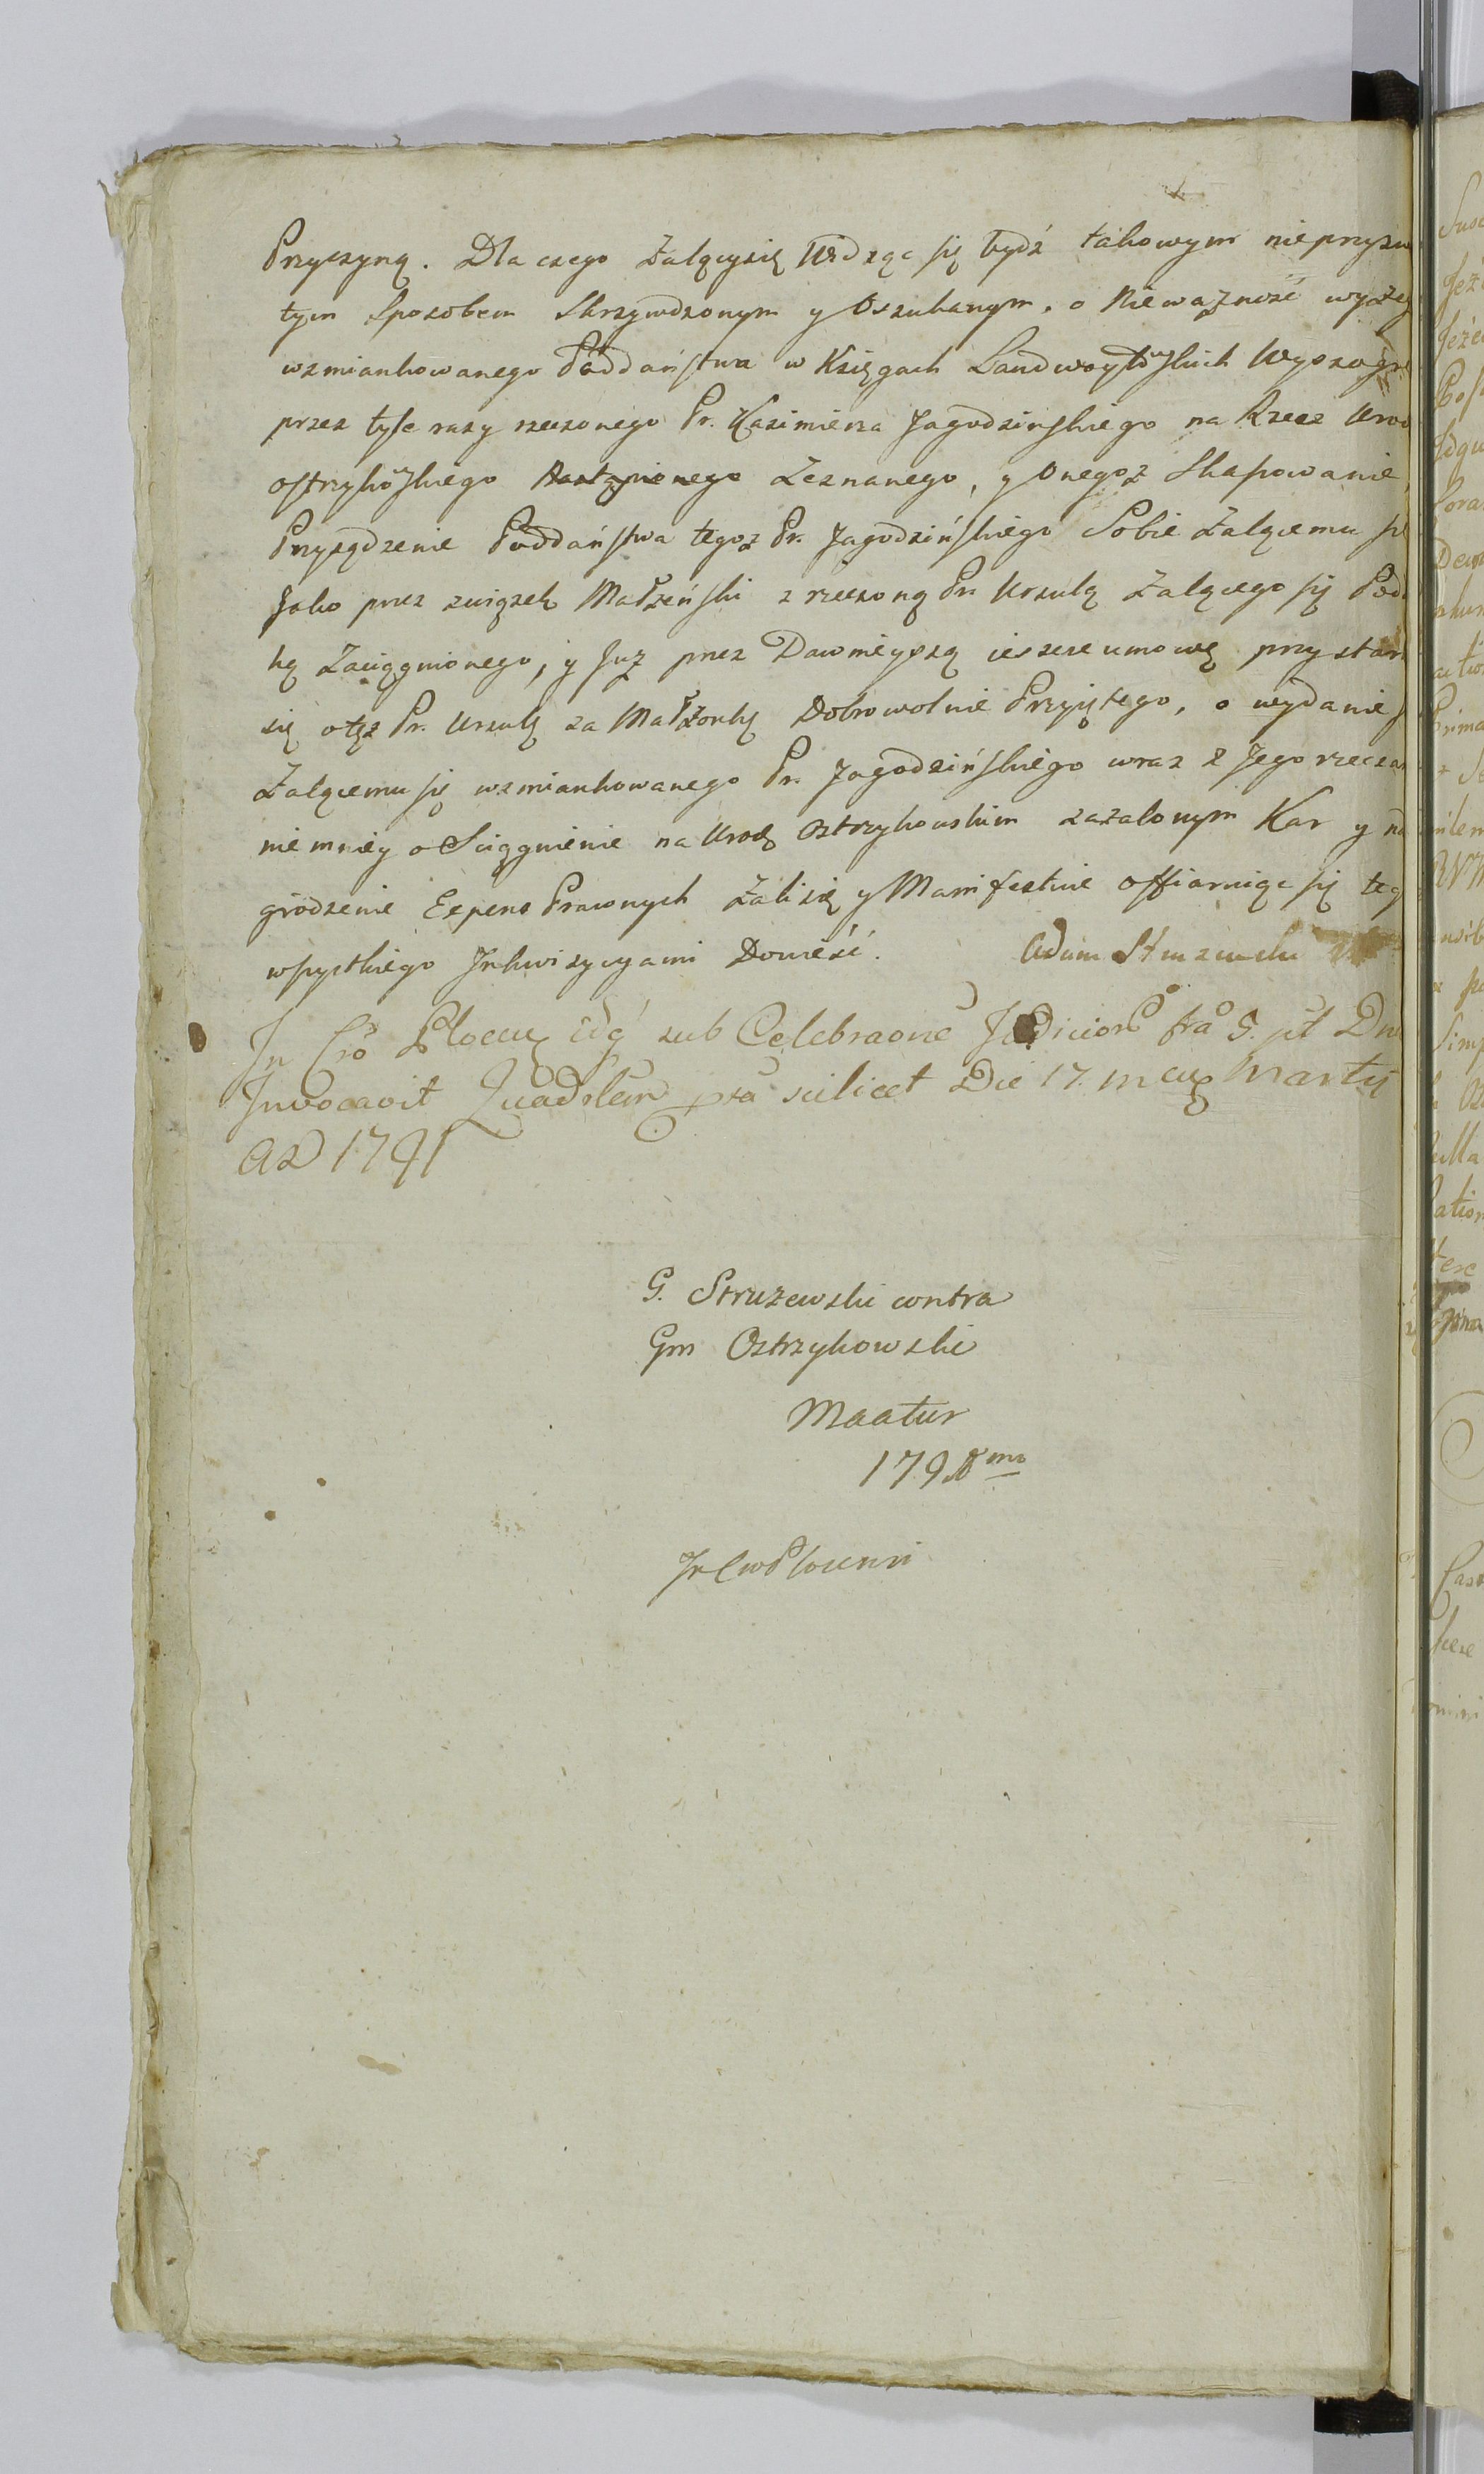 Przyczyną. Dla czego Żalącysię Widząc się bydź takowym nieprzyzw
tym Sposobem Skrzywdzonym y Oszukanym, o Nieważność wyżey
wzmiankowanego Poddaństwa w Księgach Landwoytoskich Wyszogr
przez tyle razy rzeczonego Pr. Kazimierza Jagodzinskiego na Rzecz Urod
ostrzykoskiego Zeznanego, y Onegoż Skasowanie,
Przysądzenie Poddaństwa tegoż Pr. Jagodzińskiego Sobie Żalącemu się
Jako przez związek Małżeński z rzeczoną Pr. Urszulą Żalącego się Podd
ką Zaciągnionego, y Już przez Dawnieyszą ieszcze umowę przy staran
się otęż Pr. Urszulę za Małżonkę Dobrowolnie Przyiętego, o wydanie
Żalącemu się wzmiankowanego Pr. Jagodzińskiego wraz z Jego rzeczam
niemniey o Sciągnienie na Urodz Ostrzykowskim zażalonym Kar y na
grodzenie Expens Prawnych Żali się y Manifestuie offiaruiąc się teg
wszystkiego Inkwizycyami Dowieść. Adam Struzewski
In Cro Plocen idq sub Celebraone Judicior fra 5. pt Dnc
Invocavit Quadrlem pra scilicet Die 17. mens Martij
AD 1791
G. Struzewski contra
Gm Ostrzykowski
Maatur
179 mo